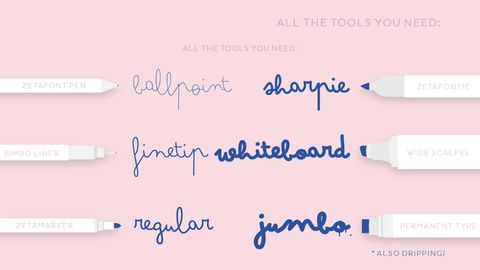 ALL THE TOOLS YOU NEED:
ALL THE TOOLS YOU NEED:
ZETAFONT PEN
ballpoint
sharpie
ZETAFONTIE
BIMBO LINER
finetip
whiteboard
WIDE SCALPEL
ZETAMARKER
regular
jumbo
PERMANENT TYPE
* ALSO DRIPPING!